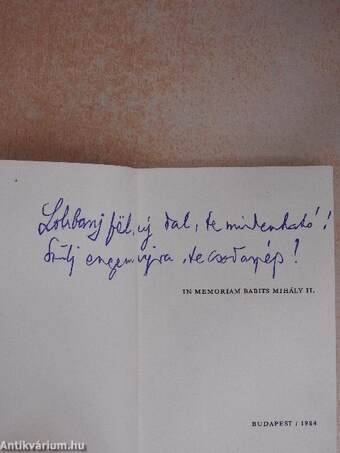 Lobbanj fël, új dal, te mindenható!
Szülj engem ujra, te csodagép!
IN MEMORIAM BABITS MIHÁLY II.
BUDAPEST / 1984
Antikvárium.hu